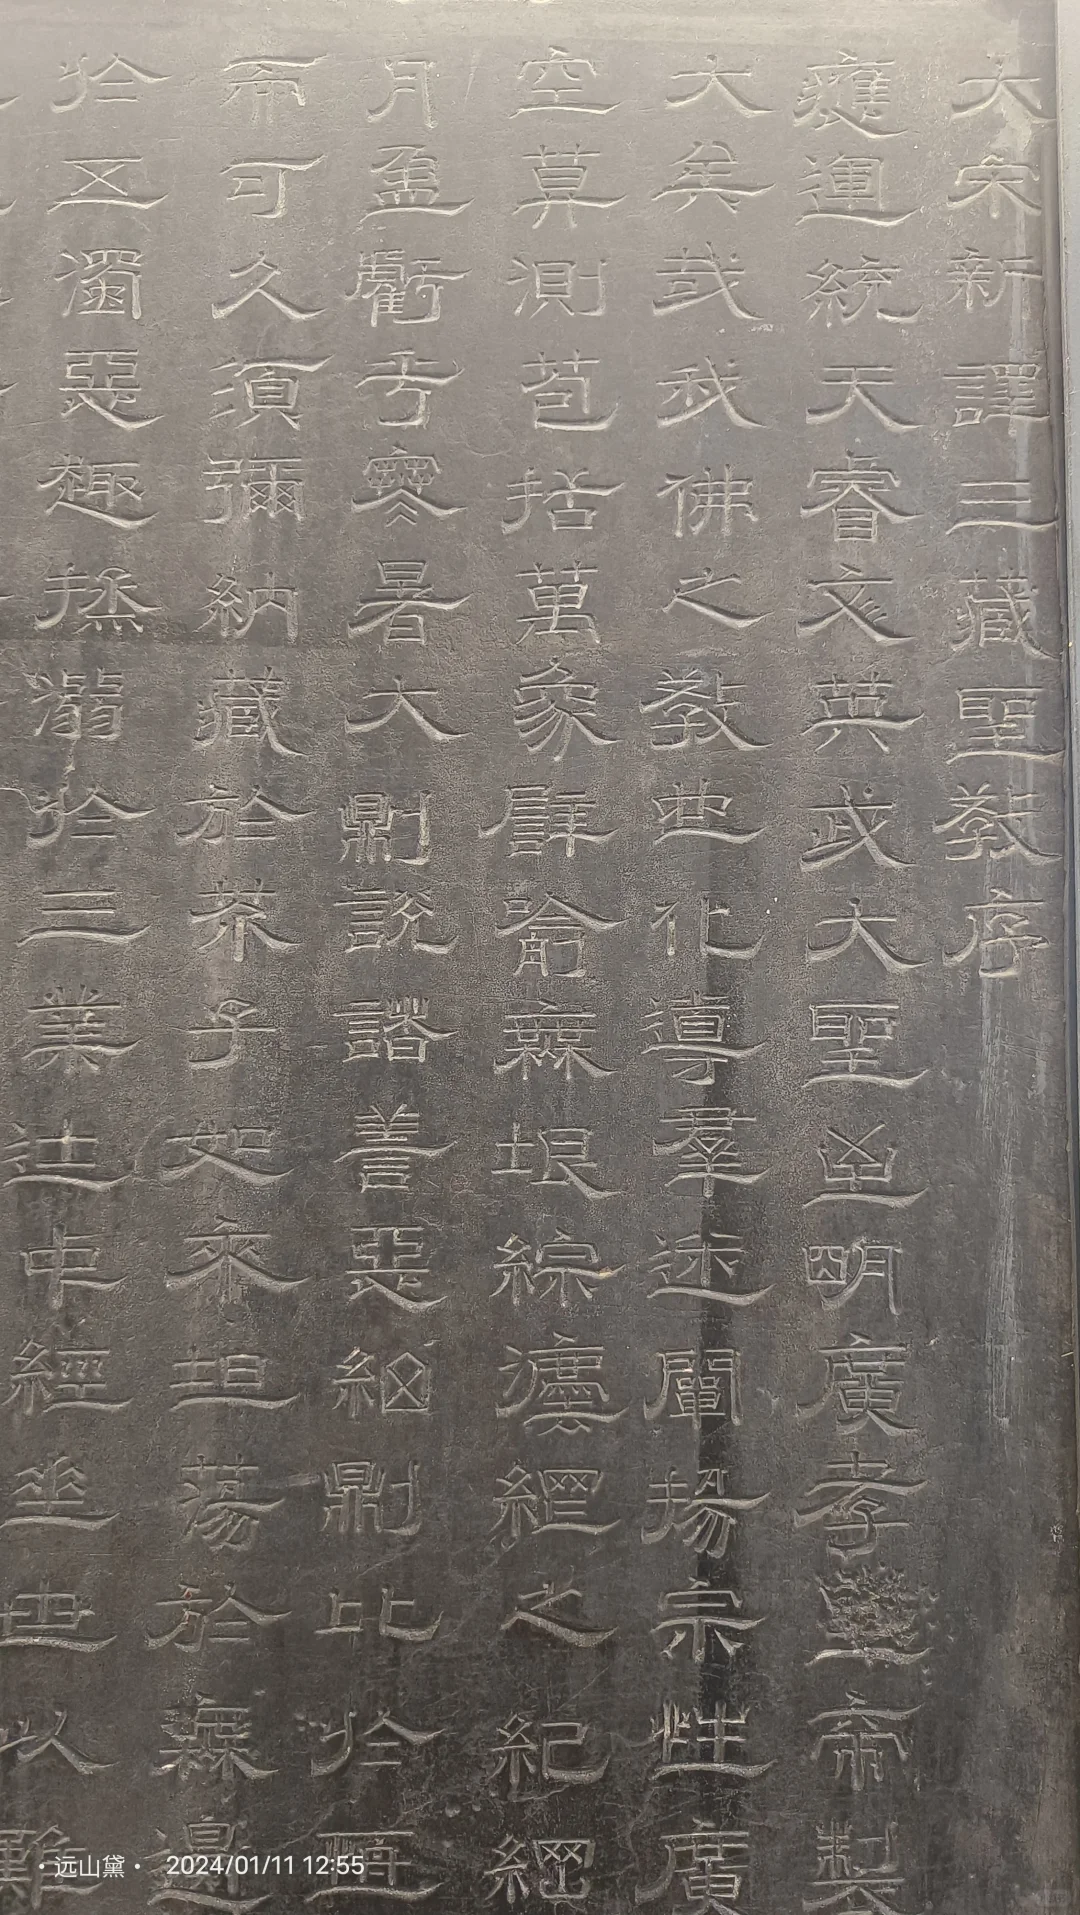 大宋新譯三藏聖教序
應運統天睿文英武大聖至明廣孝皇帝製
大矣哉我佛之教也化導羣迷闡揚宗性廣
空莫測苞括萬象譬喻無垠綜灋網之紀綱
月盈虧乎寒暑大則說諸善惡細則比於恆
而可久須彌納藏於芥子如來坦蕩於無邊
於五濁惡趣拯溺於三業途中經垂世以難
·远山黛· 2024/01/11 12:55